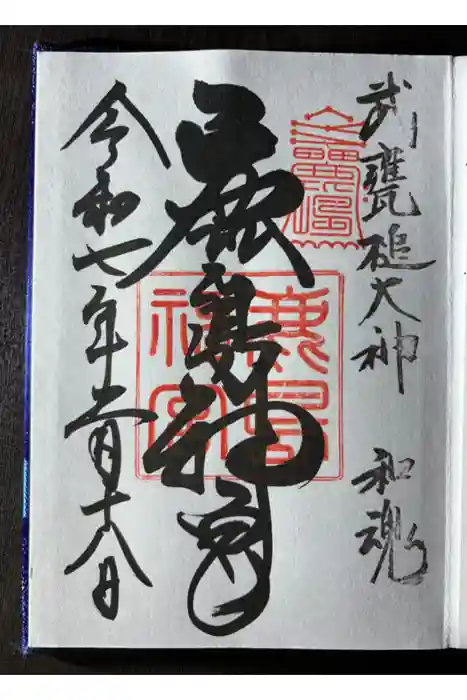 武甕槌大神 和魂
鹿島神宮
鹿島
神宮
令和七年 月十八日